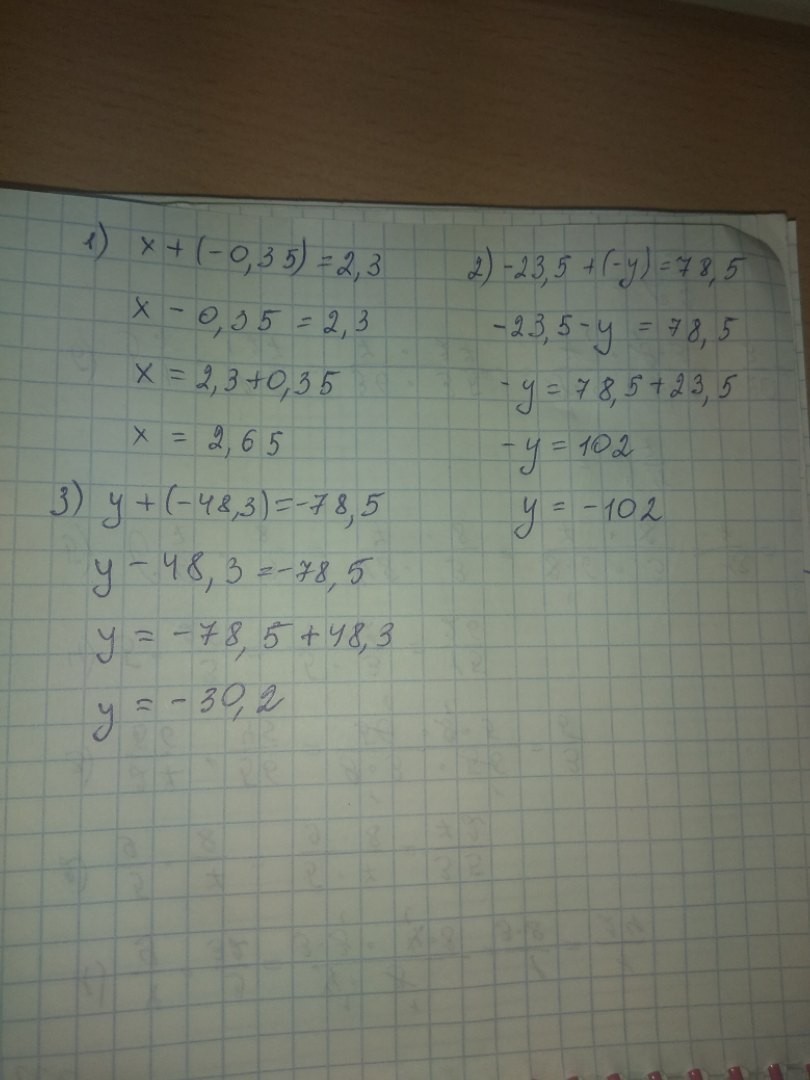 1) x + (-0,35) = 2,3
x - 0,35 = 2,3
x = 2,3+0,35
x = 2,65
2) -23,5 + (-y) = 78,5
-23,5 - y = 78,5
-y = 78,5+23,5
-y = 102
y = -102
3) y + (-48,3) = -78,5
y - 48,3 = -78,5
y = -78,5 + 48,3
y = -30,2